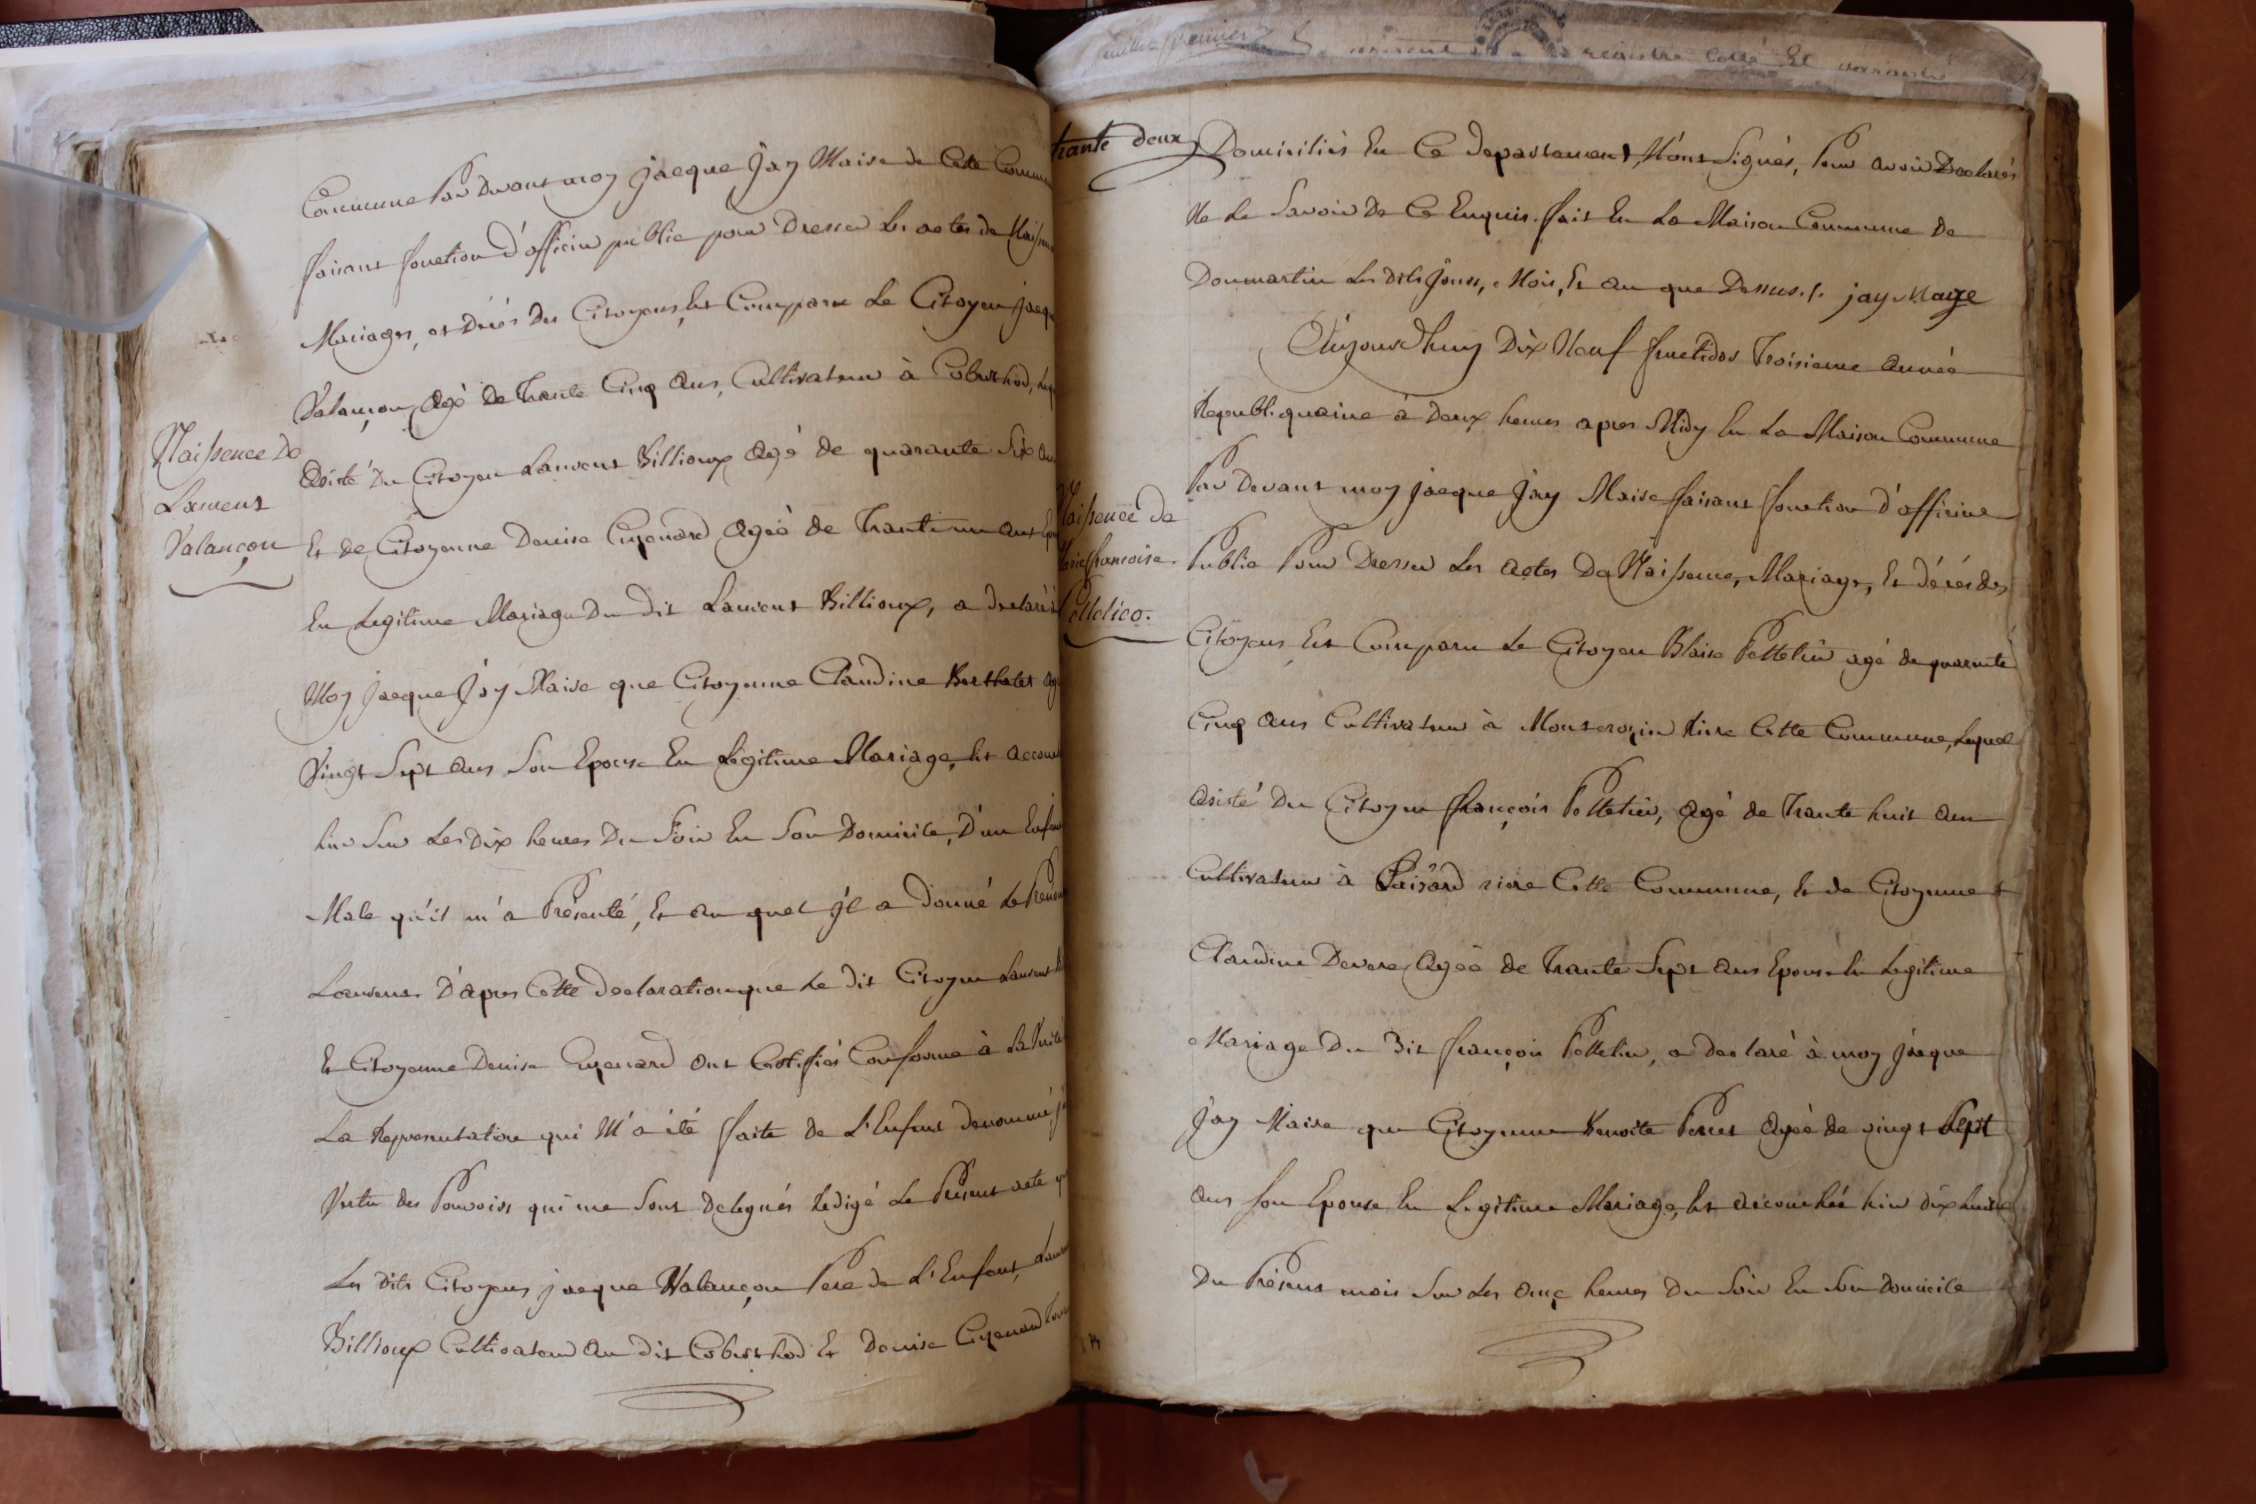 Naissence De
Laurent
Valançon
Commune Par Devant moy jacque Jay Maire de Cette
faisant fonction d'officier public pour Dresser les actes de
Mariages, et Décés des Citoyens, Est Comparu Le Citoyen
Valançon, Agé de Trante Cinq Ans, Cultivateur à Coberthod,
Asisté Du Citoyen Laurent Billioux Agé de quarante Six
Et de Citoyenne Denise Guyenard Ageé de Trante un Ans
En Legitime Mariage Du Dit Laurent Billioux, a declaré
Moy Jacque Jay Maire que Citoyenne Claudine Berthelet
Vingt Sept Ans Son Epouse En Légitime Mariage, Est
hier Sur Les Dix heures Du Soir En Son Domicile, D'un
Male qu'il m'a Présenté, Et au quel Jl a Donné Le
Laurent. D'apres Cette declaration que Le Dit Citoyen
Et Citoyenne Denise Guyenard Ont Certifiés Conforme à
La Representation qui M'a été faite de L'Enfant denommé
Vertu des Pouvoirs qui me Sont Delegués Redigé Le Présent acte
Les Dits Citoyens jacque Valançon Pere de L'Enfant,
Billioux Cultivateur au Dit Coberthod Et Denise Guyenard
trante deux
Domiciliés En Ce Departement, N'ont Signés, Pour avoir Declarés
Ne Le Savoir De Ce Enquis. fait En La Maison Commune De
Donmartin Les Dits Jours, Mois, Et an que Dessus./. jay Maire
Naissence de
françoise
Pelletier.
Aujourd'huy Dix Neuf fructidor Troisieme Année
Republiquaine à Deux heures apres Midy En La Maison Commune
Par Devant moy jacque Jay Maire faisant fonction d'officier
Public Pour Dresser Les Actes De Naissence, Mariage, Et Décés des
Citoyens, Est Comparu Le Citoyen Blaise Pelletier agé de quarante
Cinq Ans Cultivateur à Montcrozier Riere Cette Commune, Lequel
Asisté Du Citoyen françois Pelletier, Agé de Trante huit Ans
Cultivateur à riere Cette Commune, Et de Citoyenne
Claudine Devere Ageé de Trante Sept Ans Epouse En Legitime
Mariage Du Dit françois Pelletier, a declaré à moy jacque
Jay Maire que Citoyenne Benoite Perret Ageé de vingt Sept
Ans son Epouse En Legitime Mariage, Est accouchée hier dix huit
Du Présent mois Sur Les Onze heures Du Soir En Son Domicile